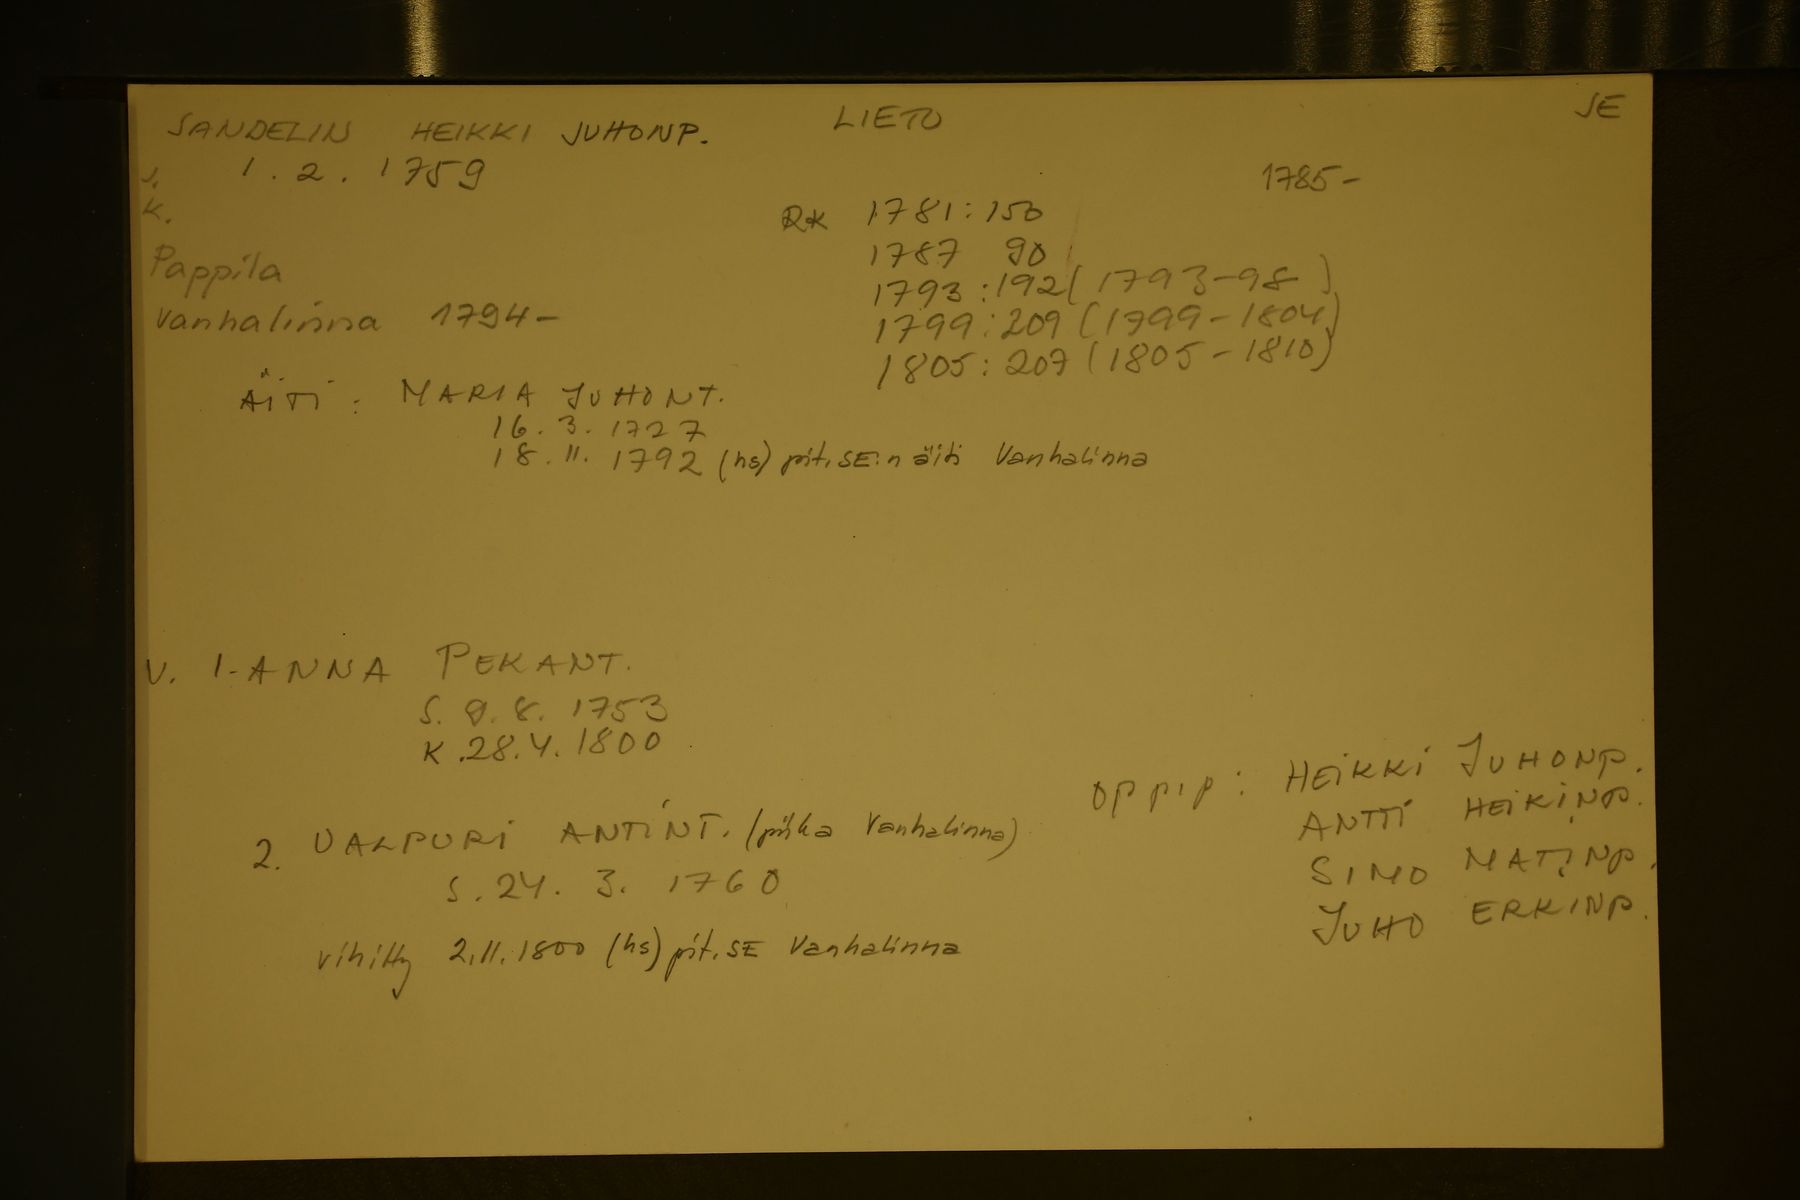 SANDELIN HEIKKI JUHONP. LIETO SE
S. 1.2.1759 1785-
K.
RK 1781:150
1787 90
Pappila
1793:192 (1793-98)
Vanhalinna 1794-
1799:209 (1799-1804)
1805:207 (1805-1810)
ÄITI: MARIA JUHONT.
16.3.1727
18.11.1792 (hs) pit.SE:n äiti Vanhalinna
V. 1-ANNA PEKANT.
S. 9.8.1753
K.28.4.1800
2. VALPURI ANTINT. (piika Vanhalinna)
S.24.3.1760
vihitty 2.11.1800 (hs) pit.SE Vanhalinna
OPPIP: HEIKKI JUHONP.
ANTTI HEIKINP.
SIMO MATINP.
JUHO ERKINP.